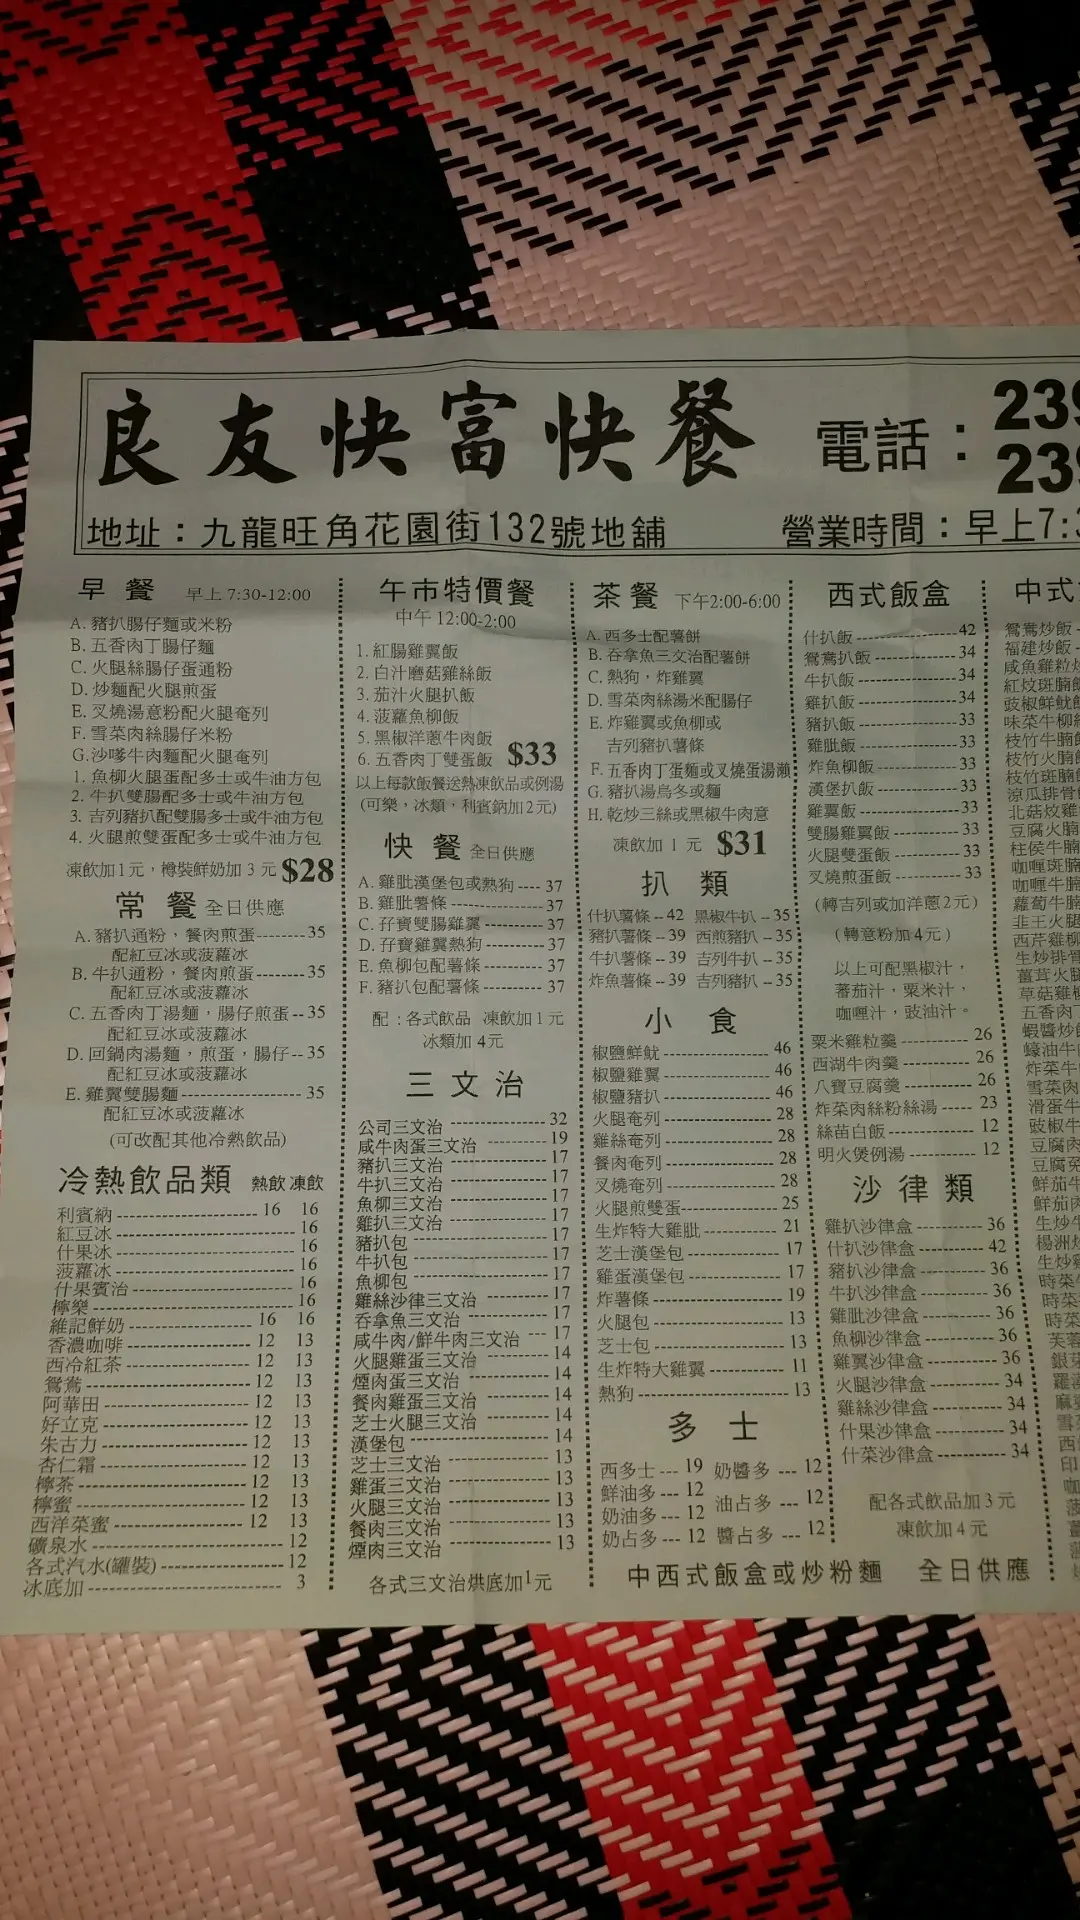 良友快富快餐
電話：239
239
地址：九龍旺角花園街132號地舖
營業時間：早上7:3
早餐 早上 7:30-12:00
A. 豬扒腸仔麵或米粉
B. 五香肉丁腸仔麵
C. 火腿絲腸仔蛋通粉
D. 炒麵配火腿煎蛋
E. 叉燒湯意粉配火腿奄列
F. 雪菜肉絲腸仔米粉
G. 沙嗲牛肉麵配火腿奄列
1. 魚柳火腿蛋配多士或牛油方包
2. 牛扒雙腸配多士或牛油方包
3. 吉列豬扒配雙腸多士或牛油方包
4. 火腿煎雙蛋配多士或牛油方包
凍飲加1元，樽裝鮮奶加 3 元 $28
常餐 全日供應
A. 豬扒通粉，餐肉煎蛋--------35
配紅豆冰或菠蘿冰
B. 牛扒通粉，餐肉煎蛋--------35
配紅豆冰或菠蘿冰
C. 五香肉丁湯麵，腸仔煎蛋--35
配紅豆冰或菠蘿冰
D. 回鍋肉湯麵，煎蛋，腸仔--35
配紅豆冰或菠蘿冰
E. 雞翼雙腸麵--------35
配紅豆冰或菠蘿冰
(可改配其他冷熱飲品)
冷熱飲品類 熱飲 凍飲
利賓納--------16 16
紅豆冰--------16
什果冰--------16
菠蘿冰--------16
什果賓治--------16
檸樂--------16
維記鮮奶--------16 16
香濃咖啡--------12 13
西冷紅茶--------12 13
鴛鴦--------12 13
阿華田--------12 13
好立克--------12 13
朱古力--------12 13
杏仁霜--------12 13
檸茶--------12 13
檸蜜--------12 13
西洋菜蜜--------12 13
礦泉水--------12
各式汽水(罐裝)--------12
冰底加--------3
午市特價餐
中午 12:00-2:00
1. 紅腸雞翼飯
2. 白汁磨菇雞絲飯
3. 茄汁火腿扒飯
4. 菠蘿魚柳飯
5. 黑椒洋蔥牛肉飯
6. 五香肉丁雙蛋飯 $33
以上每款飯餐送熱凍飲品或例湯
(可樂，冰類，利賓納加2元)
快餐 全日供應
A. 雞肶漢堡包或熱狗----37
B. 雞肶薯條--------37
C. 孖寶雙腸雞翼--------37
D. 孖寶雞翼熱狗--------37
E. 魚柳包配薯條--------37
F. 豬扒包配薯條--------37
配：各式飲品 凍飲加1元
冰類加 4元
三文治
公司三文治--------32
咸牛肉蛋三文治--------19
豬扒三文治--------17
牛扒三文治--------17
魚柳三文治--------17
雞扒三文治--------17
豬扒包--------17
牛扒包--------17
魚柳包--------17
雞絲沙律三文治--------17
吞拿魚三文治--------17
咸牛肉/鮮牛肉三文治---17
火腿雞蛋三文治--------14
煙肉蛋三文治--------14
餐肉雞蛋三文治--------14
芝士火腿三文治--------14
漢堡包--------14
芝士三文治--------13
雞蛋三文治--------13
火腿三文治--------13
餐肉三文治--------13
煙肉三文治--------13
各式三文治烘底加1元
茶餐 下午2:00-6:00
A. 西多士配薯餅
B. 吞拿魚三文治配薯餅
C. 熱狗，炸雞翼
D. 雪菜肉絲湯米配腸仔
E. 炸雞翼或魚柳或
吉列豬扒薯條
F. 五香肉丁蛋麵或叉燒蛋湯瀨
G. 豬扒湯烏冬或麵
H. 乾炒三絲或黑椒牛肉意
凍飲加 1 元 $31
扒類
什扒薯條--42 黑椒牛扒--35
豬扒薯條--39 西煎豬扒--35
牛扒薯條--39 吉列牛扒--35
炸魚薯條--39 吉列豬扒--35
小食
椒鹽鮮魷--------46
椒鹽雞翼--------46
椒鹽豬扒--------46
火腿奄列--------28
雞絲奄列--------28
餐肉奄列--------28
叉燒奄列--------28
火腿煎雙蛋--------25
生炸特大雞肶--------21
芝士漢堡包--------17
雞蛋漢堡包--------17
炸薯條--------19
火腿包--------13
芝士包--------13
生炸特大雞翼--------11
熱狗--------13
多士
西多士---19 奶醬多---12
鮮油多---12
奶油多---12 油占多---12
奶占多---12 醬占多---12
西式飯盒
什扒飯--------42
鴛鴦扒飯--------34
牛扒飯--------34
雞扒飯--------34
豬扒飯--------33
雞肶飯--------33
炸魚柳飯--------33
漢堡扒飯--------33
雞翼飯--------33
雙腸雞翼飯--------33
火腿雙蛋飯--------33
叉燒煎蛋飯--------33
(轉吉列或加洋蔥2元)
(轉意粉加4元)
以上可配黑椒汁，
蕃茄汁，粟米汁，
咖喱汁，豉油汁。
粟米雞粒羹--------26
西湖牛肉羹--------26
八寶豆腐羹--------26
炸菜肉絲粉絲湯-----23
絲苗白飯--------12
明火煲例湯--------12
沙律類
雞扒沙律盒--------36
什扒沙律盒--------42
豬扒沙律盒--------36
牛扒沙律盒--------36
雞肶沙律盒--------36
魚柳沙律盒--------36
雞翼沙律盒--------36
火腿沙律盒--------34
雞絲沙律盒--------34
什果沙律盒--------34
什菜沙律盒--------34
配各式飲品加3元
凍飲加4元
中西式飯盒或炒粉麵 全日供應
中式
鴛鴦炒飯
福建炒飯
咸魚雞粒
紅炆斑腩
豉椒鮮魷
味菜牛柳
枝竹牛腩
枝竹火腩
枝竹斑腩
涼瓜排骨
北菇炆雞
豆腐火腩
柱侯牛腩
咖喱斑腩
咖喱牛腩
蘿蔔牛腩
韭王火腿
西芹雞柳
生炒排骨
薑茸火腿
草菇雞
五香肉丁
蝦醬炒
蠔油牛
炸菜牛
雪菜肉
滑蛋牛
豉椒牛
豆腐肉
豆腐
鮮茄牛
鮮茄
生炒牛
楊洲
生炒
時菜
時菜
時菜